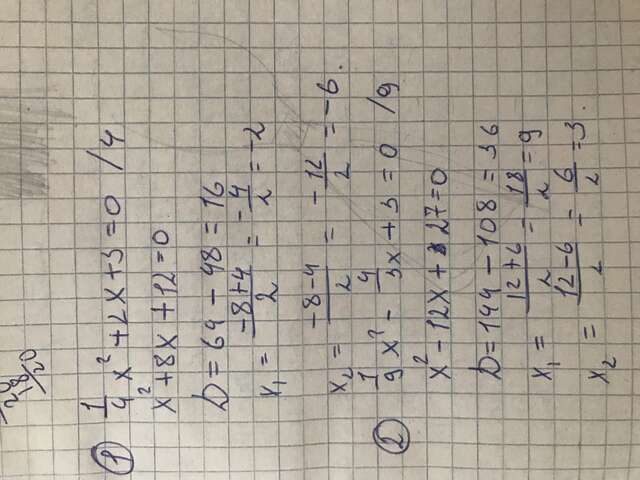 18/20
① 1/4 x² + 2x + 3 = 0 /4
x² + 8x + 12 = 0
D = 64 - 48 = 16
x₁ = (-8+4)/2 = -4/2 = -2
x₂ = (-8-4)/2 = -12/2 = -6.
② 1/9 x² - 4/3x + 3 = 0 /9
x² - 12x + 27 = 0
D = 144 - 108 = 36
x₁ = (12+6)/2 = 18/2 = 9
x₂ = (12-6)/2 = 6/2 = 3.